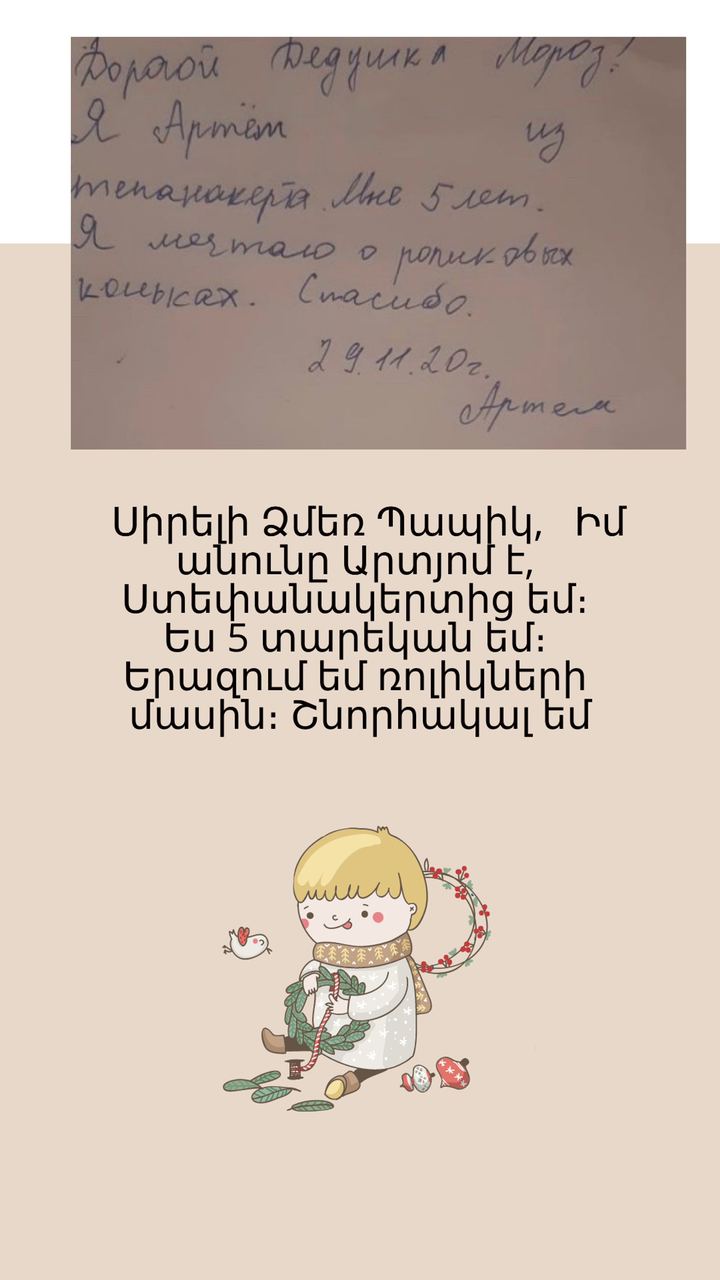 Дорогой Дедушка Мороз!
Я Артём из
тепанакерта. Мне 5 лет.
Я мечтаю о роликовых
коньках. Спасибо.
29.11.20г.
Артем
Սիրելի Ձմեռ Պապիկ, Իմ
անունը Արտյոմ է,
Ստեփանակերտից եմ։
Ես 5 տարեկան եմ։
Երազում եմ ռոլիկների
մասին։ Շնորհակալ եմ